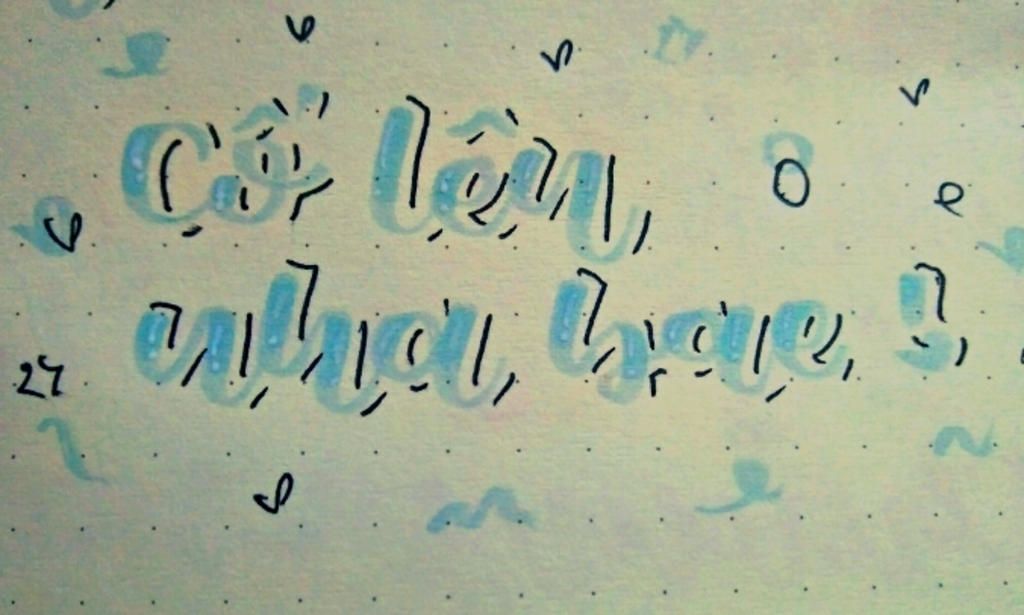 Cố lên
nha bae !
24